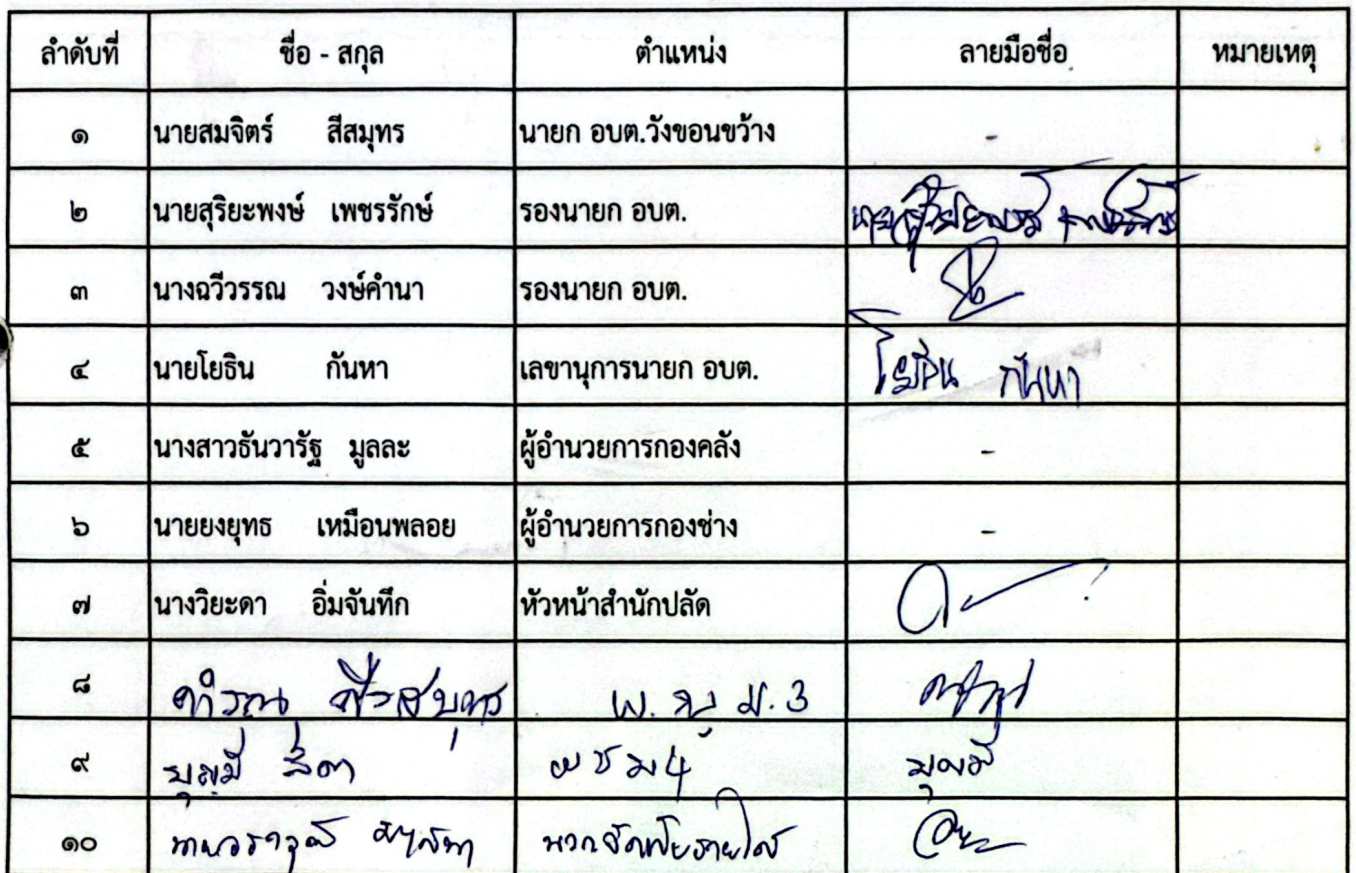 ลำดับที่ ชื่อ - สกุล ตำแหน่ง ลายมือชื่อ หมายเหตุ
๑ นายสมจิตร์ สีสมุทร นายก อบต.วังขอนขว้าง -
๒ นายสุริยะพงษ์ เพชรรักษ์ รองนายก อบต.
๓ นางฉวีวรรณ วงษ์คำนา รองนายก อบต.
๔ นายโยธิน กันหา เลขานุการนายก อบต. โยธิน กันหา
๕ นางสาวธันวารัฐ มูลละ ผู้อำนวยการกองคลัง -
๖ นายยงยุทธ เหมือนพลอย ผู้อำนวยการกองช่าง -
๗ นางวิยะดา อิ่มจันทึก หัวหน้าสำนักปลัด
๘ ม.3
๙ บุญมี สีดา ม4 บุญมี
๑๐